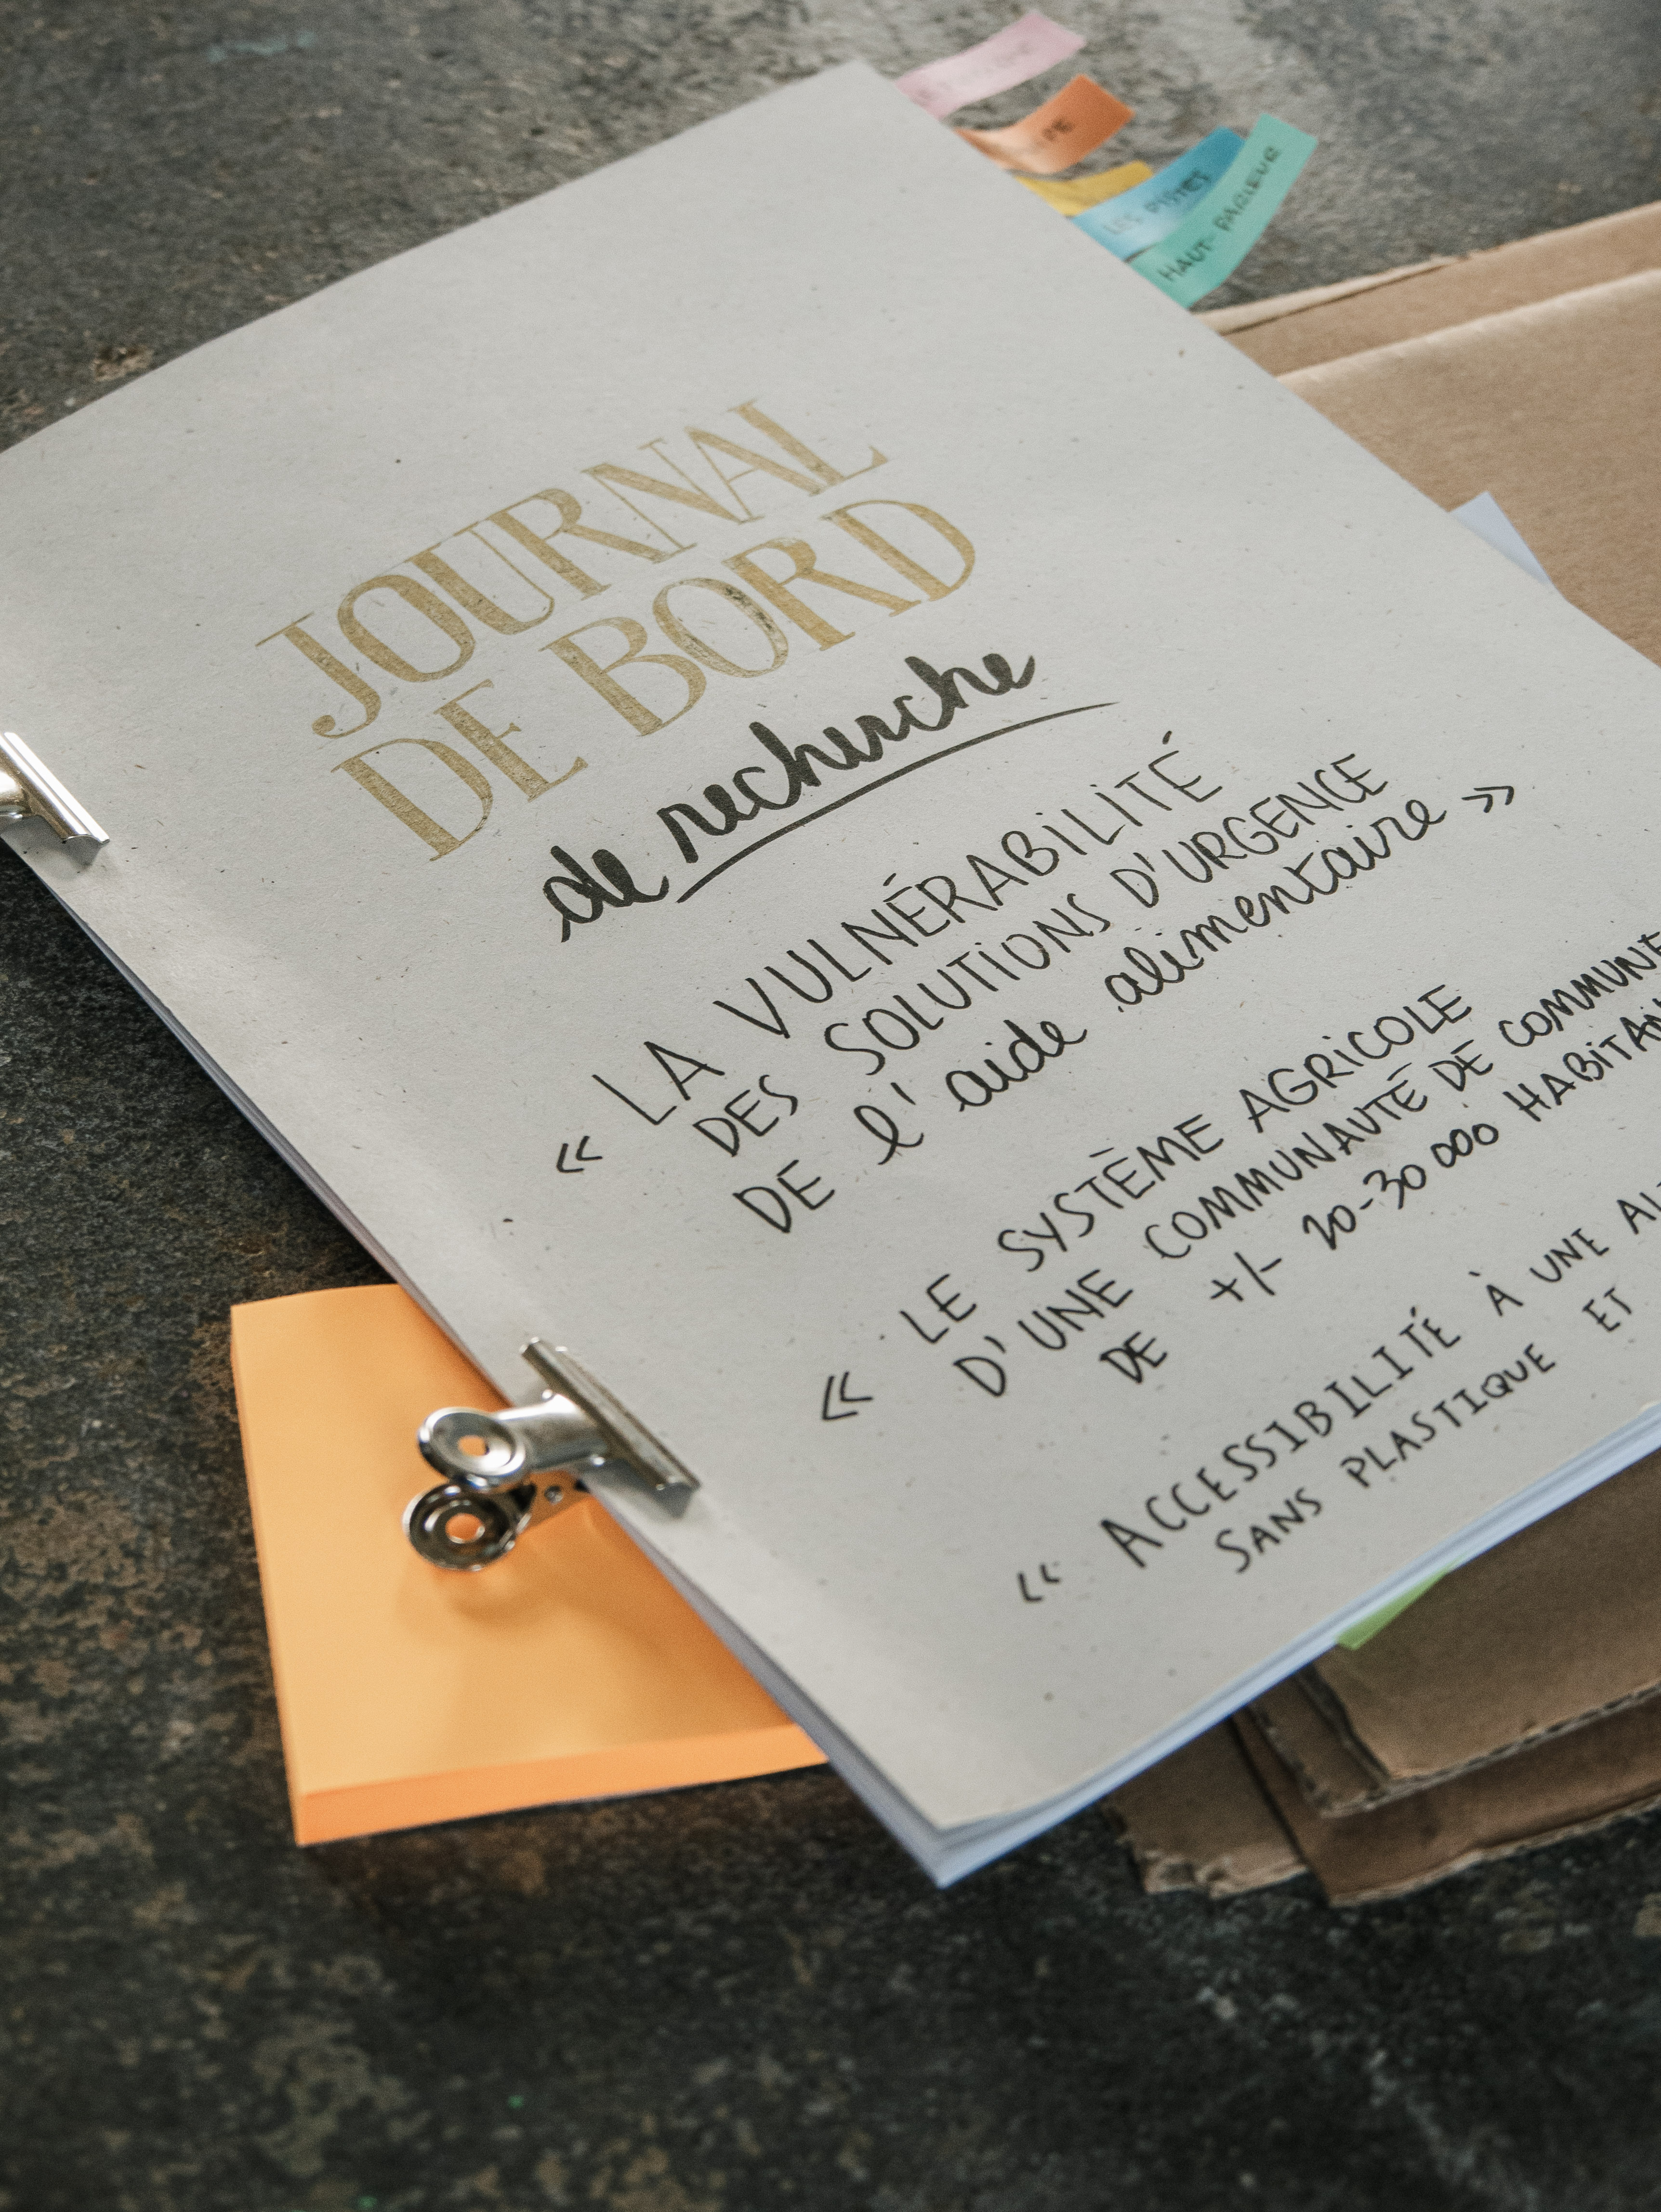 LES PISTES
HAUT-PARLEUR
JOURNAL
DE BORD
de recherche
« LA VULNÉRABILITÉ
DES SOLUTIONS D'URGENCE
DE l'aide alimentaire »
« LE SYSTÈME AGRICOLE
D'UNE COMMUNAUTÉ DE COMMUNE
DE +/- 20-30 000
« ACCESSIBILITÉ À UNE
SANS PLASTIQUE ET